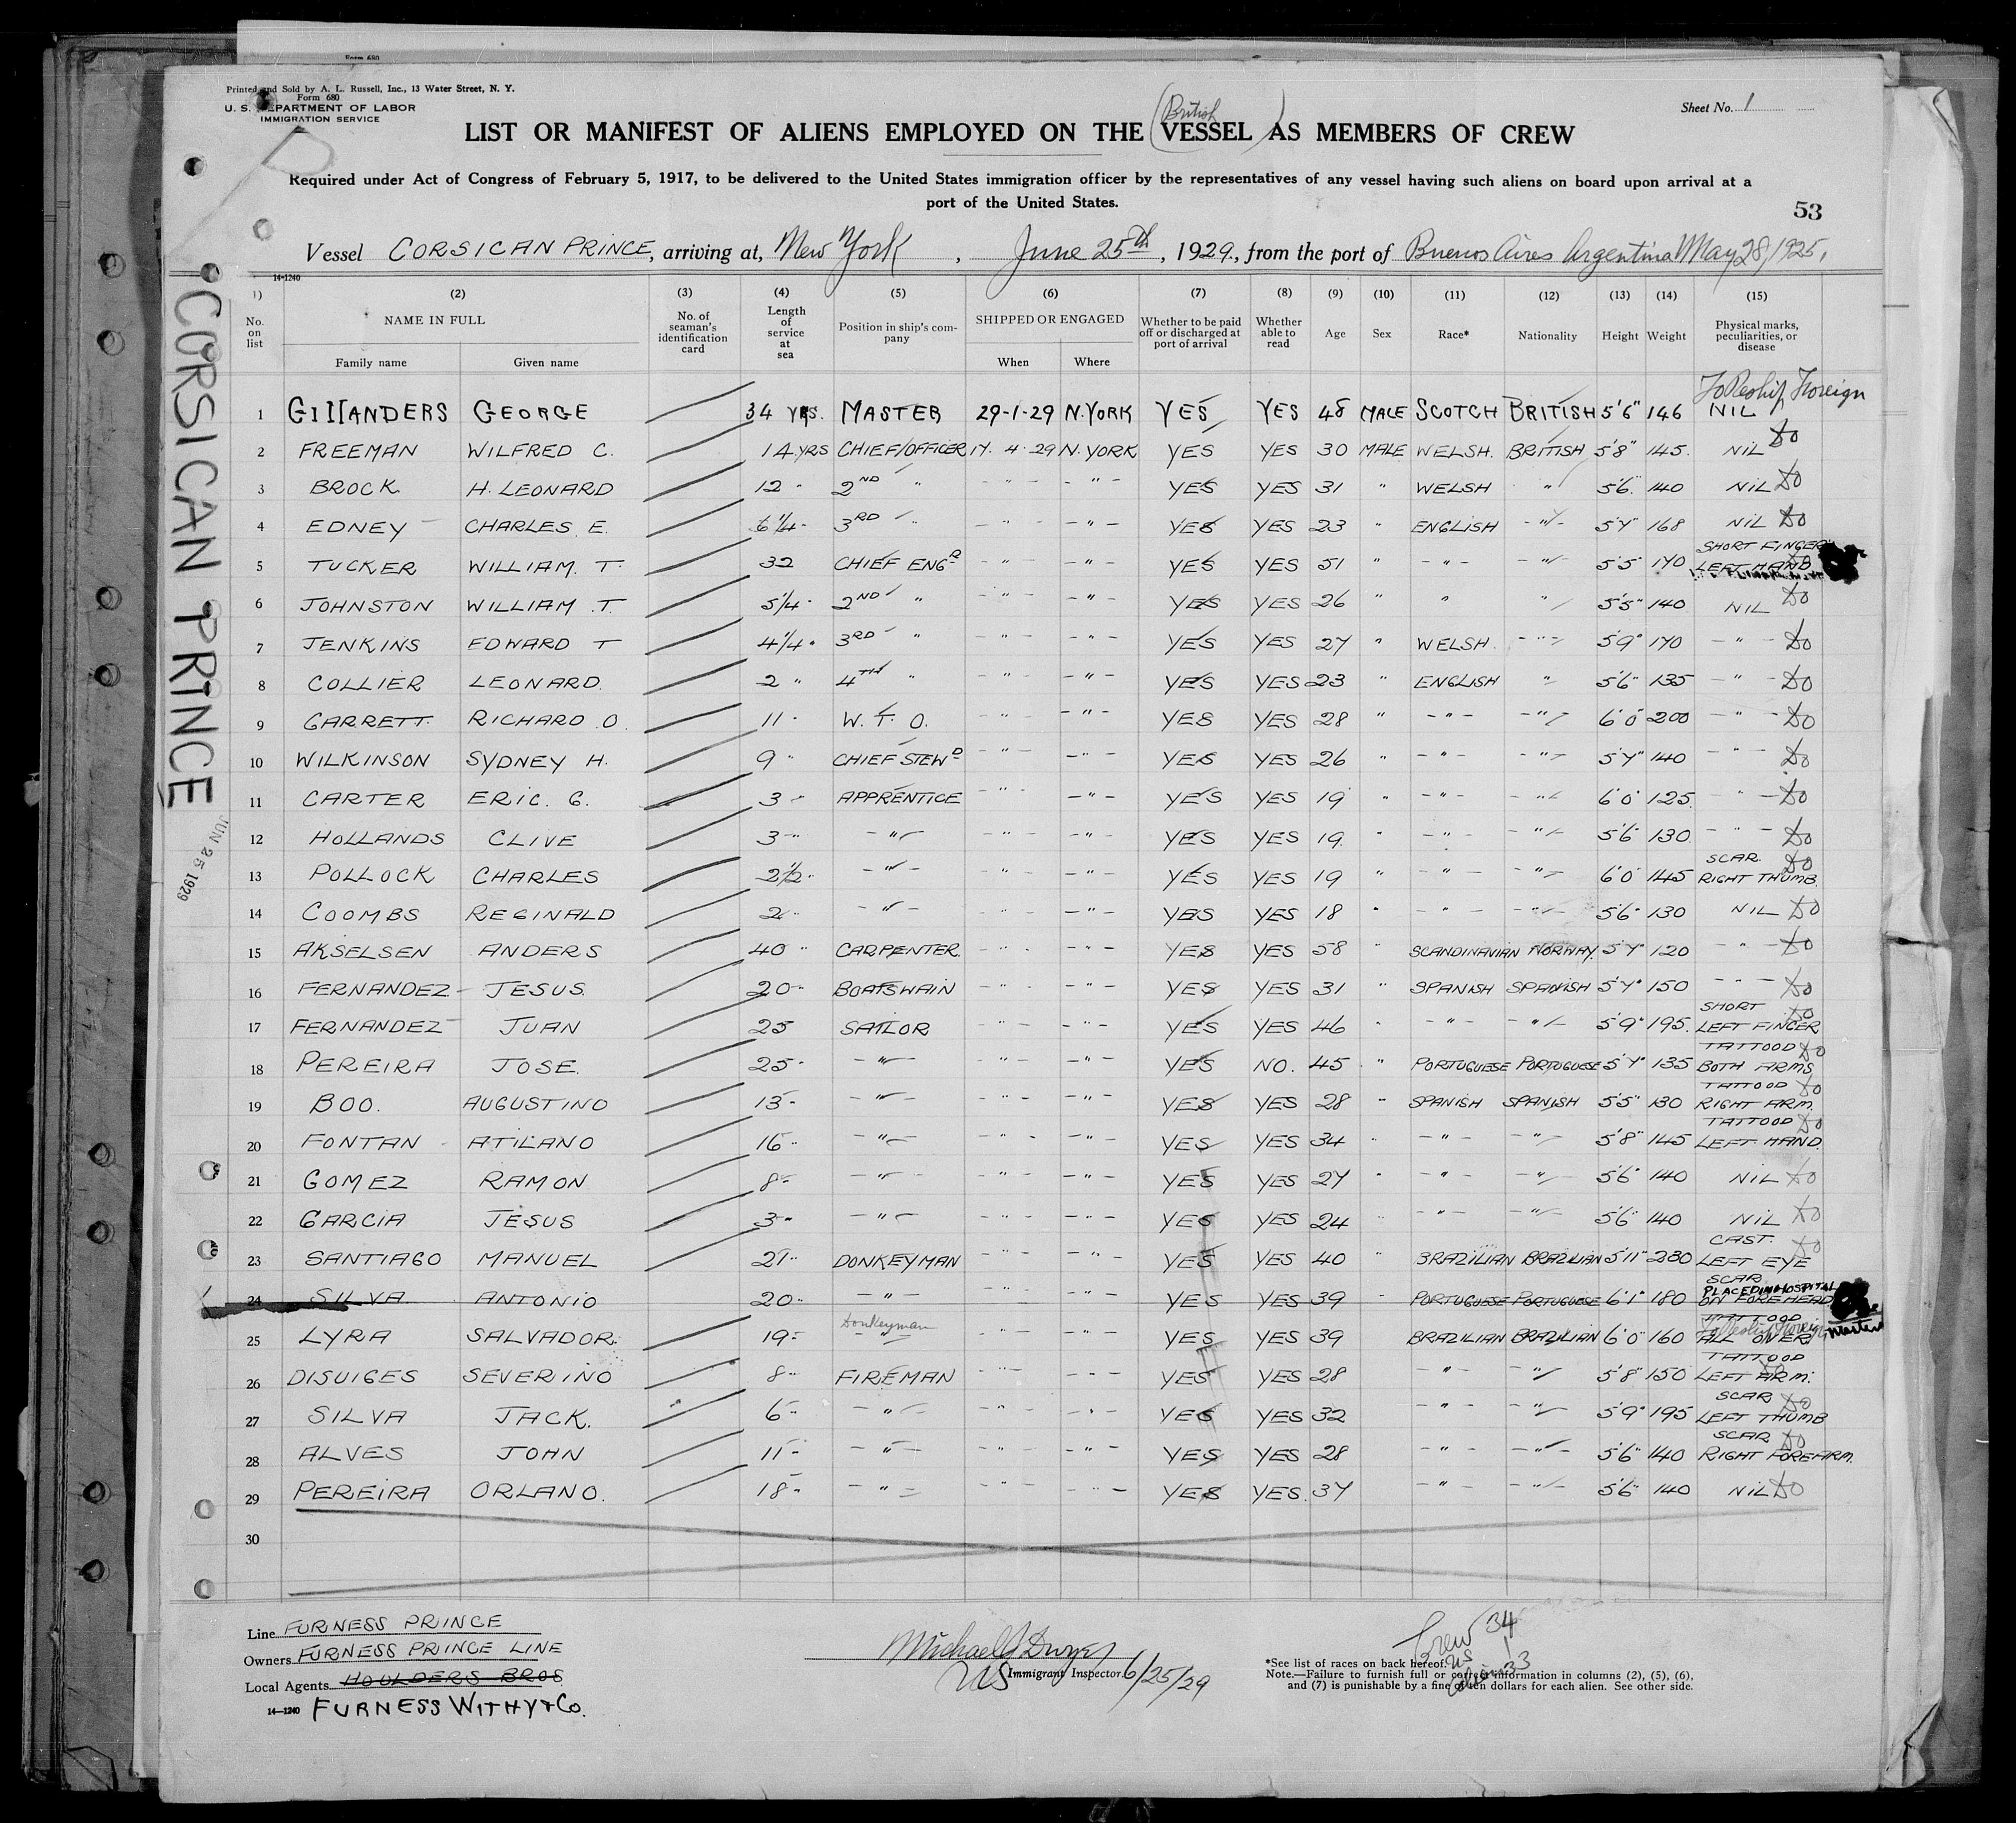 Form 680
Printed and Sold by A. L. Russell, Inc., 13 Water Street, N. Y.
Form 680
U. S. DEPARTMENT OF LABOR
IMMIGRATION SERVICE
Sheet No. 1
(British)
LIST OR MANIFEST OF ALIENS EMPLOYED ON THE VESSEL AS MEMBERS OF CREW
Required under Act of Congress of February 5, 1917, to be delivered to the United States immigration officer by the representatives of any vessel having such aliens on board upon arrival at a
port of the United States.
53
Vessel CORSICAN PRINCE, arriving at, New York, June 25th, 1929., from the port of Buenos Aires Argentina May 28, 1925.
14-1240
CORSICAN PRINCE
JUN 25 1929
1) (2) (3) (4) (5) (6) (7) (8) (9) (10) (11) (12) (13) (14) (15)
No. on list NAME IN FULL Family name Given name No. of seaman's identification card Length of service at sea Position in ship's company SHIPPED OR ENGAGED When Where Whether to be paid off or discharged at port of arrival Whether able to read Age Sex Race* Nationality Height Weight Physical marks, peculiarities, or disease
To Reship Foreign
1 GILLANDERS GEORGE 34 YRS. MASTER 29-1-29 N.YORK YES YES 48 MALE SCOTCH BRITISH 5'6" 146 NIL
2 FREEMAN WILFRED C. 14 YRS CHIEF/OFFICER 17 4 29 N. YORK YES YES 30 MALE WELSH. BRITISH 5'8" 145. NIL Do
3 BROCK H. LEONARD 12 " 2ND " - " - - " - YES YES 31 " WELSH " 5'6" 140 NIL Do
4 EDNEY CHARLES. E. 6 1/4 " 3RD " - " - - " - YES YES 23 " ENGLISH - " - 5'7" 168 NIL Do
5 TUCKER WILLIAM. T. 32 CHIEF ENGR - " - - " - YES YES 51 " - " - - " - 5'5" 170 SHORT FINGER LEFT HAND Do
6 JOHNSTON WILLIAM .T. 5 1/4 " 2ND " - " - - " - YES YES 26 " " " 5'5" 140 NIL Do
7 JENKINS EDWARD T 4 1/4 " 3RD " - " - - " - YES YES 27 " WELSH. - " - 5'9" 170 - " - Do
8 COLLIER LEONARD. 2 " 4TH " - " - - " - YES YES 23 " ENGLISH " 5'6" 135 - " - Do
9 GARRETT. RICHARD O. 11 " W. T. O. - " - - " - YES YES 28 " - " - - " - 6'0" 200 - " - Do
10 WILKINSON SYDNEY H. 9 " CHIEF STEWD - " - - " - YES YES 26 " - " - - " - 5'7" 140 - " - Do
11 CARTER ERIC. G. 3 " APPRENTICE - " - - " - YES YES 19 " - " - - " - 6'0" 125. - " - Do
12 HOLLANDS CLIVE 3 " - " - - " - - " - YES YES 19. " - " - - " - 5'6" 130 - " - Do
13 POLLOCK CHARLES 2 1/2 " - " - - " - - " - YES YES 19 " - " - - " - 6'0" 145 SCAR. RIGHT THUMB. Do
14 COOMBS REGINALD 2 " - " - - " - - " - YES YES 18 " - " - - " - 5'6" 130 NIL Do
15 AKSELSEN ANDERS 40 " CARPENTER. - " - - " - YES YES 58 " SCANDINAVIAN NORWAY. 5'7" 120 - " - Do
16 FERNANDEZ JESUS. 20 " BOATSWAIN - " - - " - YES YES 31 " SPANISH SPANISH 5'7" 150 - " - Do
17 FERNANDEZ JUAN 25 SAILOR - " - - " - YES YES 46 " - " - - " - 5'9" 195. SHORT LEFT FINGER Do
18 PEREIRA JOSE. 25 " - " - - " - - " - YES NO. 45 " PORTUGUESE PORTUGUESE 5'7" 135 TATTOOD BOTH ARMS Do
19 BOO. AUGUSTINO 13 " - " - - " - - " - YES YES 28 " SPANISH SPANISH 5'5" 130 TATTOOD RIGHT ARM. Do
20 FONTAN ATILANO 16 " - " - - " - - " - YES YES 34 " - " - - " - 5'8" 145 TATTOOD LEFT HAND. Do
21 GOMEZ RAMON 8 " - " - - " - - " - YES YES 27 " - " - - " - 5'6" 140 NIL Do
22 GARCIA JESUS 3 " - " - - " - - " - YES YES 24 " - " - - " - 5'6" 140 NIL Do
23 SANTIAGO MANUEL 21 " DONKEYMAN - " - - " - YES YES 40 " BRAZILIAN BRAZILIAN 5'11" 230 CAST. LEFT EYE Do
24 SILVA ANTONIO 20 " - " - - " - - " - YES YES 39 " PORTUGUESE PORTUGUESE 6'1" 180 SCAR ON FOREHEAD PLACED IN HOSPITAL
25 LYRA SALVADOR. 19 " Donkeyman - " - - " - - " - YES YES 39 BRAZILIAN BRAZILIAN 6'0" 160 TATTOOD ALL OVER To Reship Foreign Master
26 DISUIGES SEVERINO 8 " FIREMAN - " - - " - YES YES 28 - " - - " - 5'8" 150 TATTOOD LEFT ARM. Do
27 SILVA JACK. 6 " - " - - " - - " - YES YES 32 - " - - " - 5'9" 195 SCAR LEFT THUMB Do
28 ALVES JOHN 11 " - " - - " - - " - YES YES 28 - " - - " - 5'6" 140 SCAR RIGHT FOREARM. Do
29 PEREIRA ORLANO. 18 " - " - - " - - " - YES YES. 37 - " - - " - 5'6" 140 NIL Do
30
Line FURNESS PRINCE
Owners FURNESS PRINCE LINE
Local Agents HOULDERS BROS
14-1240 FURNESS WITHY & Co.
Michael J Dwyer
US Immigrant Inspector. 6/25/29
Crew 34
US 1
aliens 33
*See list of races on back hereof.
Note.—Failure to furnish full or correct information in columns (2), (5), (6),
and (7) is punishable by a fine of ten dollars for each alien. See other side.